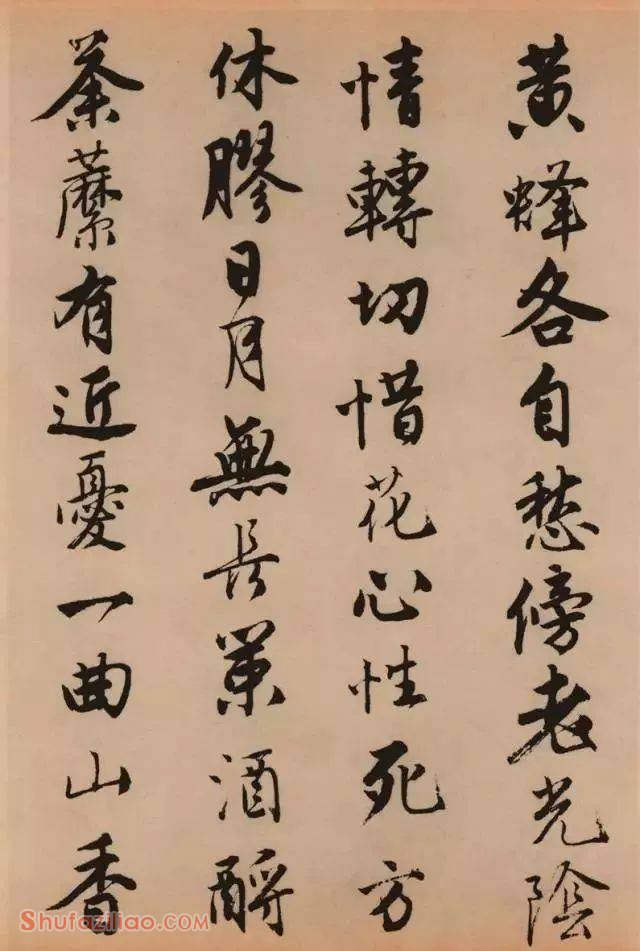 黄蜂各自愁傍老光陰
情轉切惜花心性死方
休膠日月無長策酒酹
荼蘼有近憂一曲山香
Shufaziliao.com